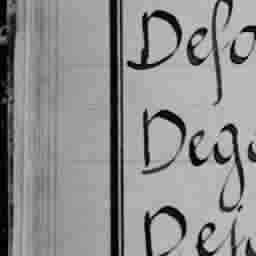 Defo
Dega
Dei